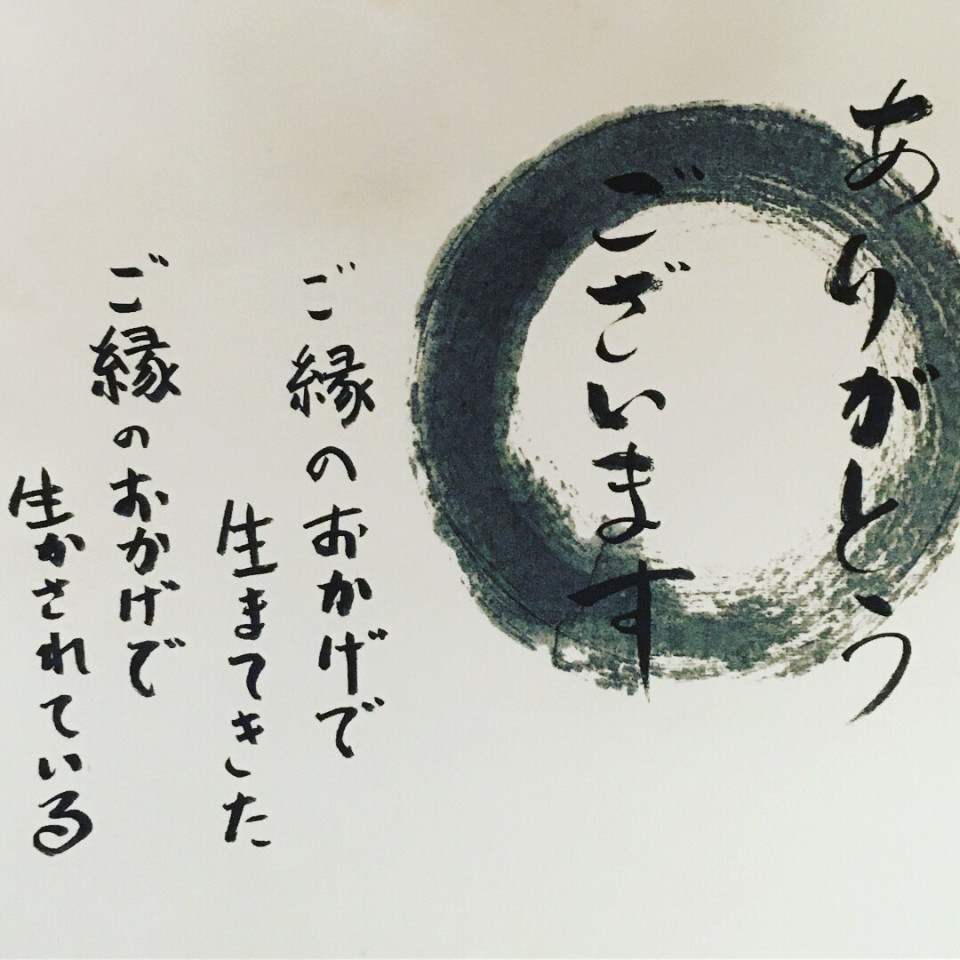 ありがとう
ございます
ご縁のおかげで
生まてきた
ご縁のおかげで
生かされている